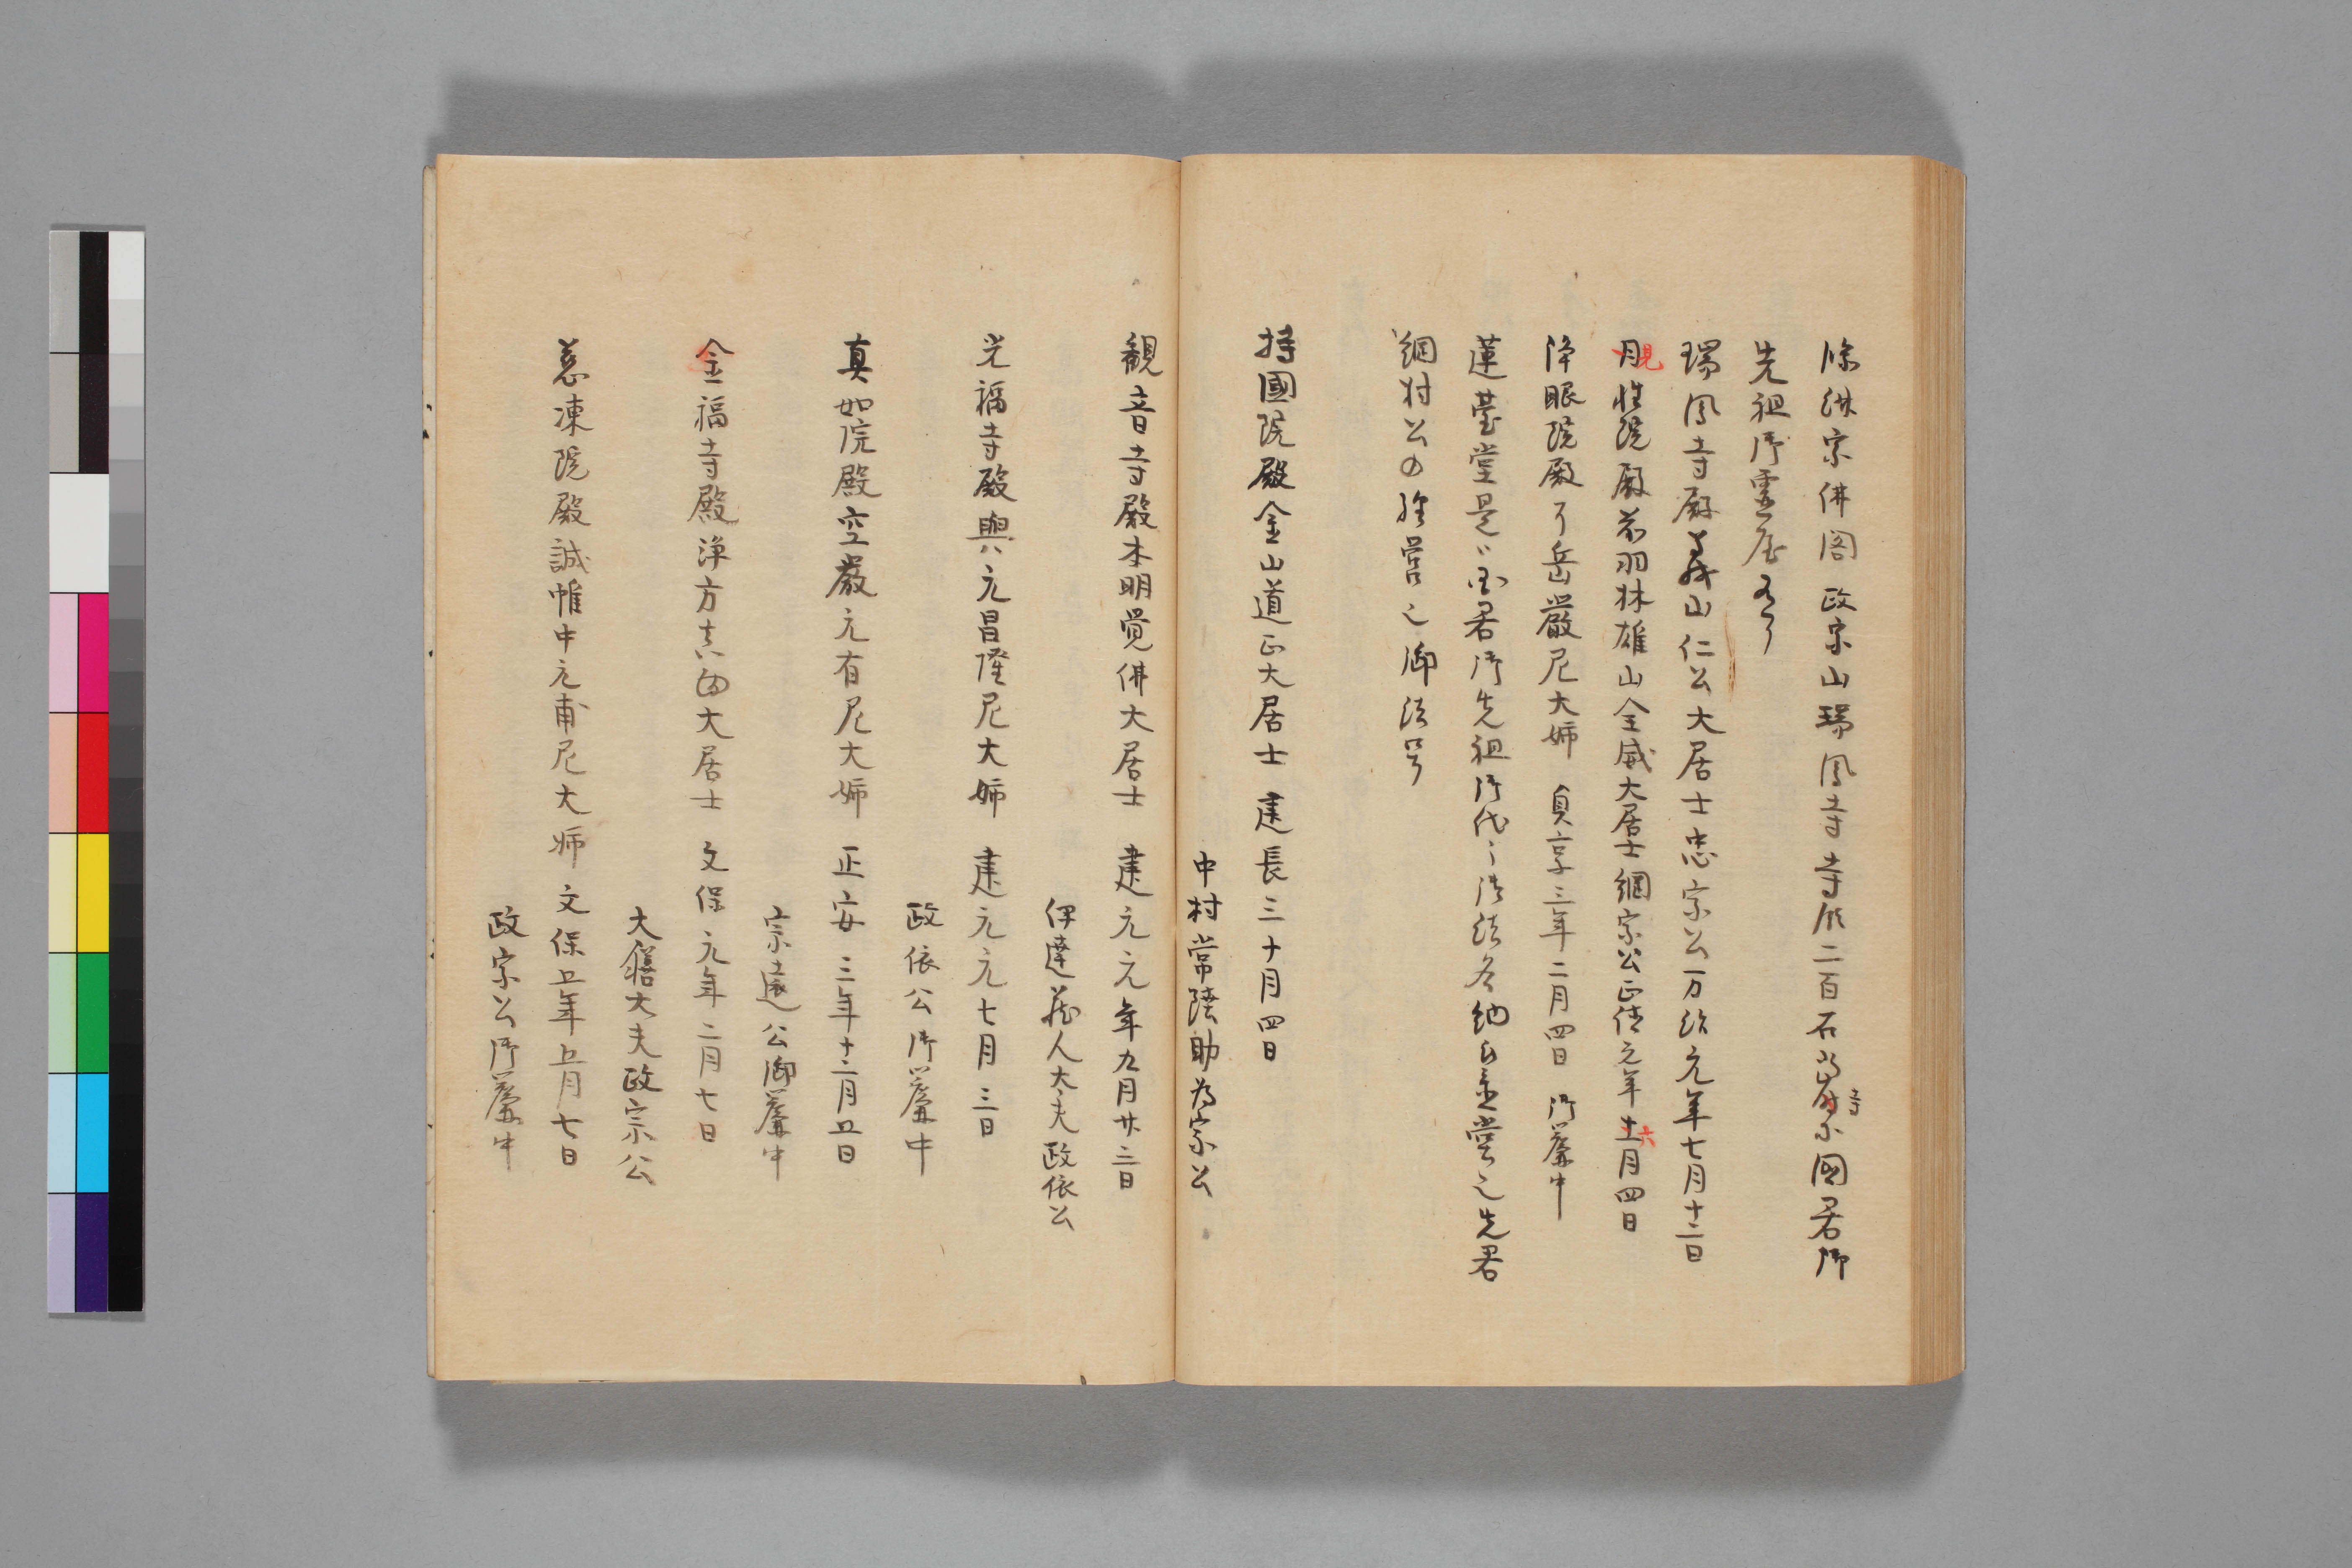 済宗佛閣政宗山瑞鳳寺寺領二百石当寺ハ國君御
先祖御霊屋有り
瑞鳳寺殿義山仁公大居士忠宗公万治元年七月十二日
見性院殿前羽林雄山全威大居士綱宗公正徳元年六月四日
浄眼院殿了岳巌尼大姉 貞享三年二月四日 御簾中
蓮臺堂是ハ國君御先祖御代々御法名納ム金堂之先君
綱村公の経営之御法号
持國院殿金山道正大居士 建長三十月四日
中村常陸助為宗公
観音寺殿本明覚佛大居士 建元元年九月廿三日
伊達蔵人大夫政依公
光福寺殿興元昌隆尼大姉 建元元七月三日
政依公御簾中
真如院殿空巌元有尼大姉 正安三年十二月五日
宗遠公御簾中
金福寺殿浄方真西大居士 文保元年二月七日
大膳大夫政宗公
慈凍院殿誠惟中元甫尼大姉 文保五年五月七日
政宗公御簾中